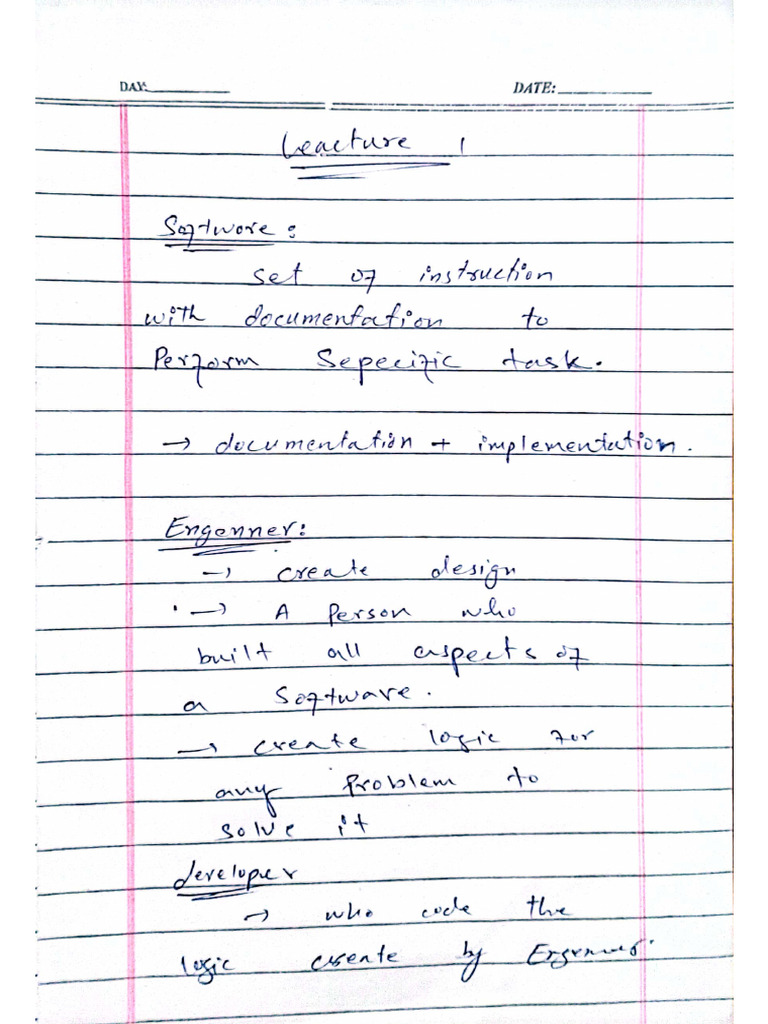 DAY: DATE:
Leacture 1
Software:
set of instruction
with documentation to
Perform Sepecific task.
→ documentation + implementation.
Engenner:
→ create design
→ A Person who
built all aspects of
a Software.
→ create logic for
any Problem to
solve it
developer
→ who code the
logic create by Engenner.